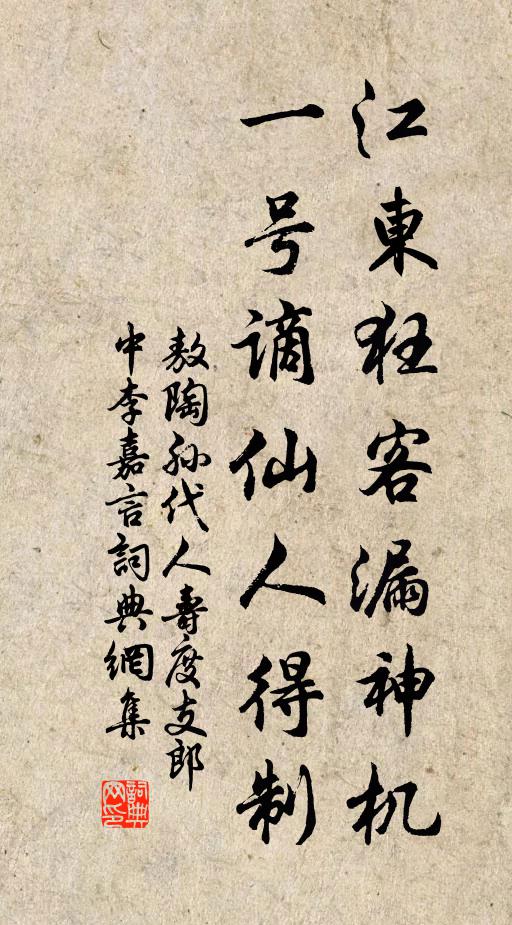 江東狂客漏神机
一号谪仙人得制
敖陶孙代人壽度支郎
中李嘉言詞典網集
詞典
网印